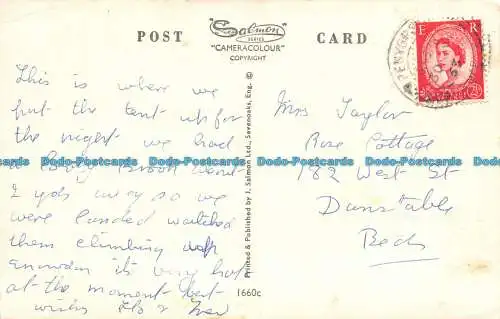 POST
"Salmon"
SERIES
"CAMERACOLOUR"
COPYRIGHT
CARD
E R
PENYGR
2½D
This is where we
put the tent up for
the night we had
a Brook
2 yds away so we
were landed watched
them climbing up
Snowdon its very hot
at the moment best
wishes &
Printed & Published by J. Salmon Ltd., Sevenoaks, Eng. ©
1660c
Mrs Taylor
Rose Cottage
182 West St
Dunstable
Beds
Dodo-Postcards Dodo-Postcards Dodo-Postcards Dodo-Postcards Dodo-Postcards Dodo-Postcards